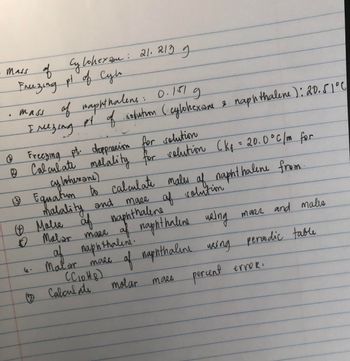 . Mass of Cyclohexane: 21.213 g
Freezing pt of Cyclh
. mass of naphthalene: 0.151 g
Freezing pt of solution (cylohexane & naphthalene): 20.51°C
① Freezing pt. depression for solution
② Calculate molality for solution (kf = 20.0°C/m for
cylohexane)
③ Equation to calculate moles of naphthalene from
molality and mass of solution
④ Moles of naphthalene
⑤ Molar mass of naphthalene using mass and moles
of naphthalene.
6. Molar mass of naphthalene using periodic table
(C10H8)
⑦ Calculate molar mass percent error.